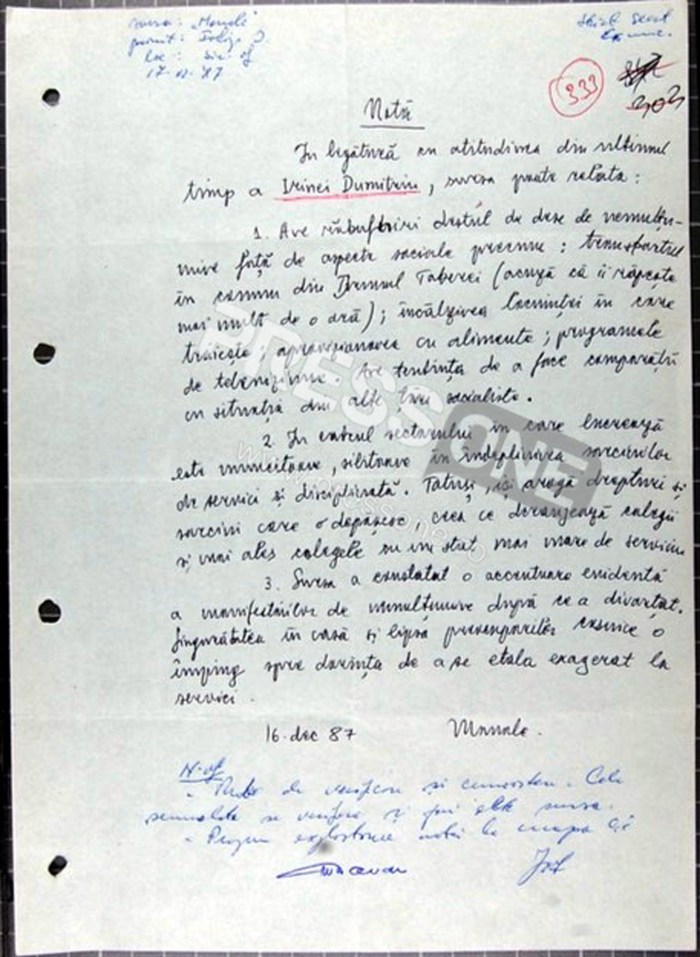 sursa: „Manole"
primit:
loc:
17.12.87
Strict Secret
Ex. unic.
333
303
Notă
În legătură cu atitudinea din ultimul
timp a Irinei Dumitriu, sursa poate relata:
1. Are răbufniri destul de dese de nemulțu-
mire față de aspecte sociale precum: transportul
în comun din Drumul Taberei (acuză că îi răpește
mai mult de o oră); încălzirea locuinței în care
trăiește; aprovizionarea cu alimente; programele
de televiziune. Are tendința de a face comparații
cu situația din alte țări socialiste.
2. În cadrul sectorului în care lucrează
este muncitoare, silitoare în îndeplinirea sarcinilor
de servici și disciplinată. Totuși, își arogă drepturi și
sarcini care o depășesc, ceea ce deranjează colegii
și mai ales colegele cu un stat mai mare de serviciu
3. Sursa a constatat o accentuare evidentă
a manifestărilor de nemulțumire după ce a divorțat.
Singurătatea în casă și lipsa preocupărilor casnice o
împing spre dorința de a se etala exagerat la
servici.
16. dec 87 Manole.
N. of
- de verificare si cunoastere. Cele
semnalate se verifica si prin alte surse.
- nota la mapa
PRESSONE